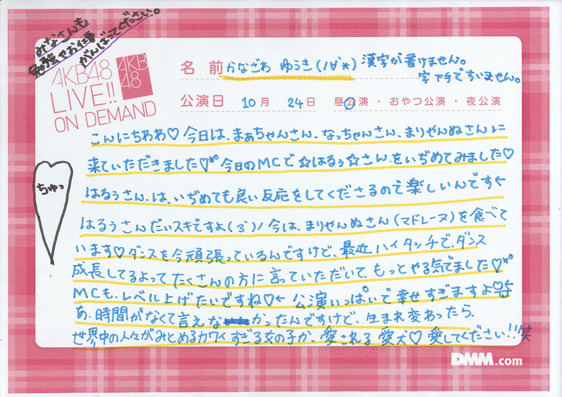 みなさんも
勉強やお仕事
がんばってください。
AKB48
LIVE!!
ON DEMAND
AKB
48
名 前 かなざわ ゆうき(ノ∀`*) 漢字が書けません。
字下手ですいません。
公演日 10月 24日 昼公演・おやつ公演・夜公演
こんにちわわ♡今日は、まぁちゃんさん、なっちゃんさん、まりやんぬさんに
来ていただきました♡今日のMCで☆はるぅ☆さんをいぢめてみました♡
はるうさん、は、いぢめても良い反応をしてくださるので楽しいんです←
はるうさんだいスキですよ(3)ノ今は、まりやんぬさん(マドレーヌ)を食べて
います♡ダンスを今頑張っているんですけど、最近ハイタッチで、ダンス
成長してるよってたくさんの方に言っていただいてもっとやる気でました♡
MCも、レベル上げたいですね♡←公演いっぱいで幸せすぎますよ♡
あ、時間がなくて言えなかったんですけど、生まれ変わったら、
世界中の人々がみとめるカワイすぎる女の子か、愛される愛犬♡愛してください!!笑
ちゅっ
DMM.com